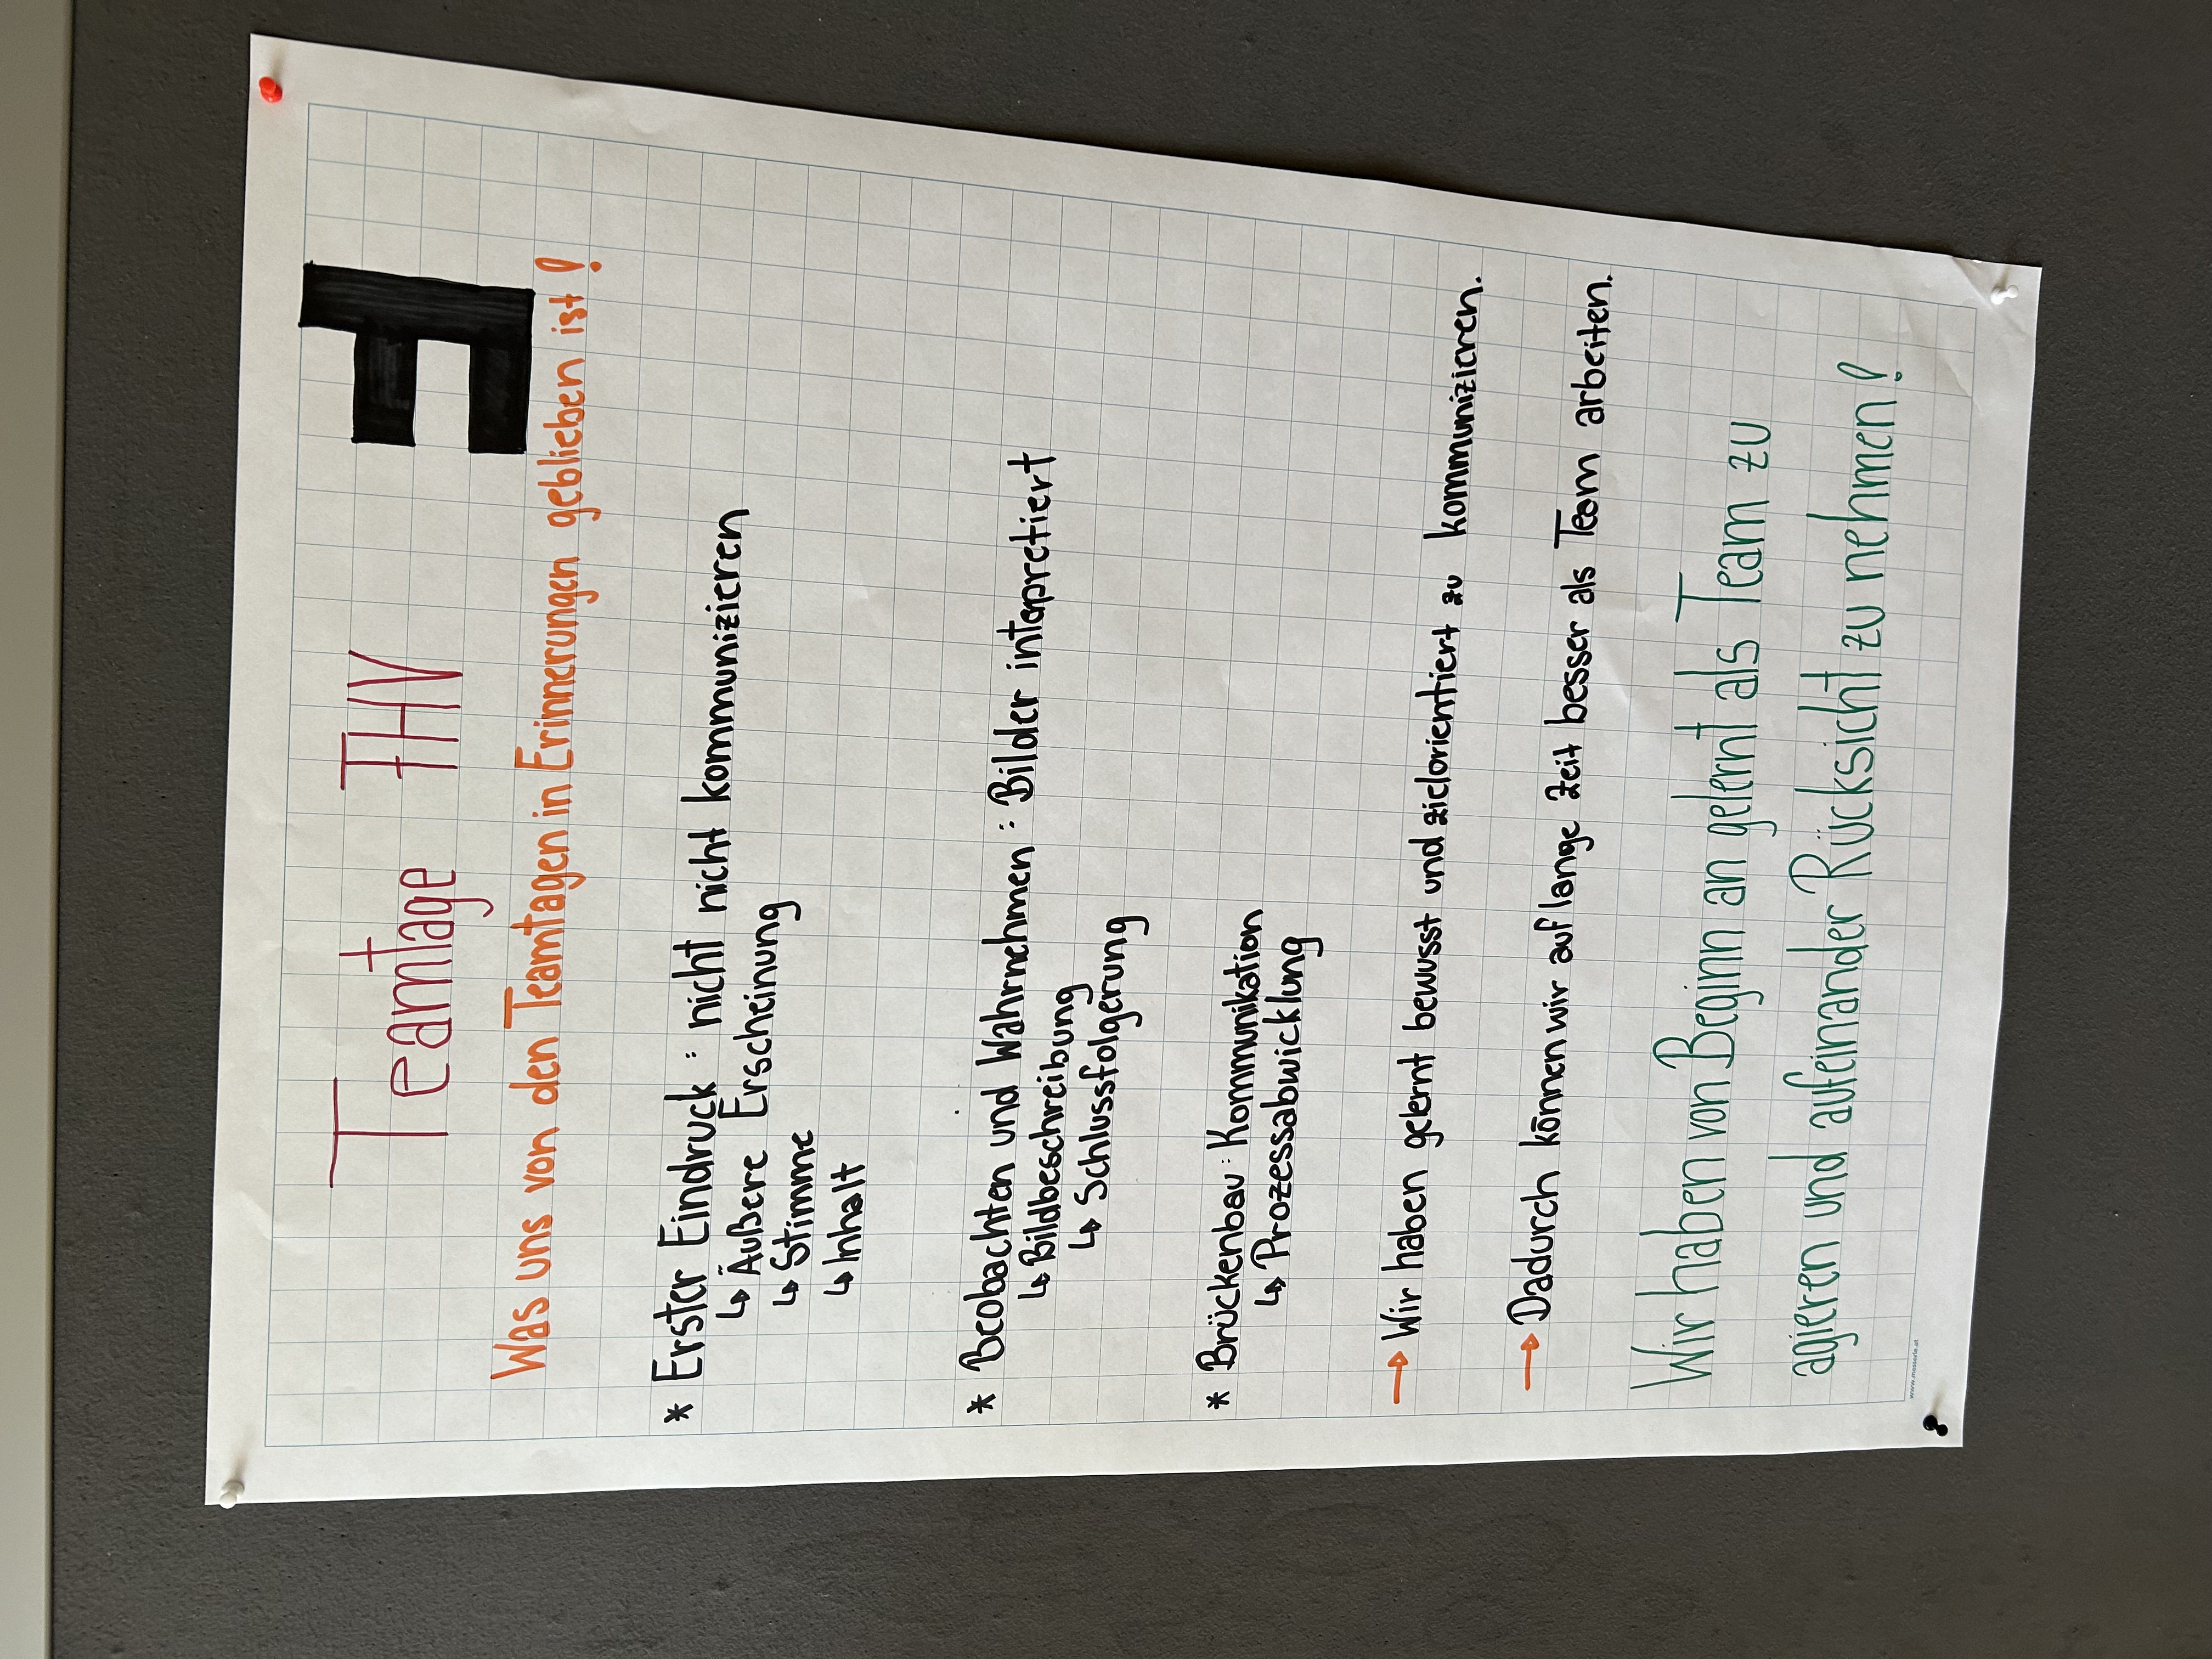 Teamtage FHV
Was uns von den Teamtagen in Erinnerungen geblieben ist!
* Erster Eindruck: nicht nicht kommunizieren
↳ Äußere Erscheinung
↳ Stimme
↳ Inhalt
* Beobachten und Wahrnehmen: Bilder interpretiert
↳ Bildbeschreibung
↳ Schlussfolgerung
* Brückenbau: Kommunikation
↳ Prozessabwicklung
→ Wir haben gelernt bewusst und zielorientiert zu kommunizieren.
→ Dadurch können wir auf lange Zeit besser als Team arbeiten.
Wir haben von Beginn an gelernt als Team zu
agieren und aufeinander Rücksicht zu nehmen!